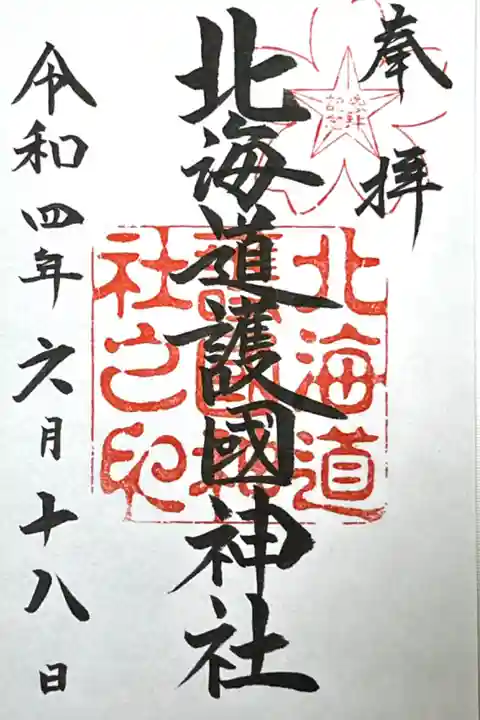 奉拝
参拝記念
北海道護國神社
北海道護國神社之印
令和四年六月十八日